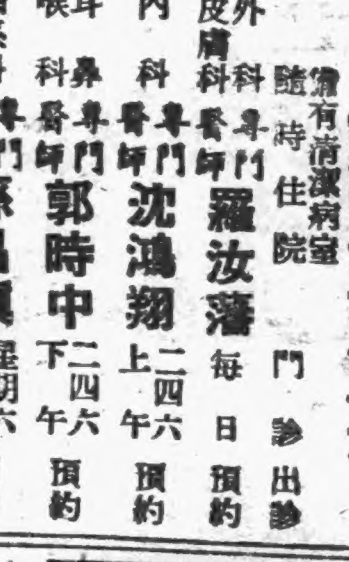 備有清潔病室
隨時住院
門診出診
外科
皮膚科
專門
醫師
羅汝藩
每日預約
內科
專門
醫師
沈鴻翔
二四六
上午
預約
耳鼻
喉科
專門
醫師
郭時中
二四六
下午
預約
科
專門
星期六